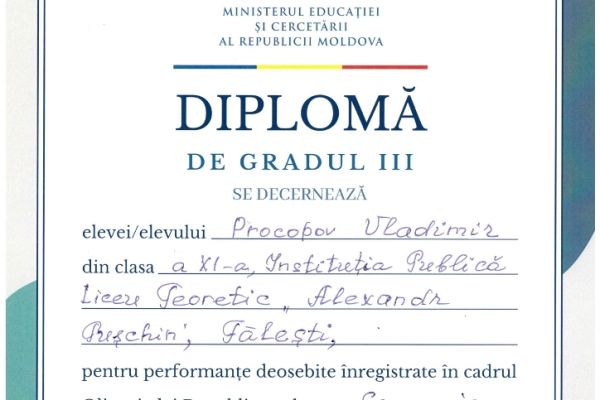 MINISTERUL EDUCAȚIEI
ȘI CERCETĂRII
AL REPUBLICII MOLDOVA
DIPLOMĂ
DE GRADUL III
SE DECERNEAZĂ
elevei/elevului Procopov Vladimir
din clasa a XI-a, Instituția Publică
Liceu Teoretic „Alexandr
Pușchin”, Fălești,
pentru performanțe deosebite înregistrate în cadrul